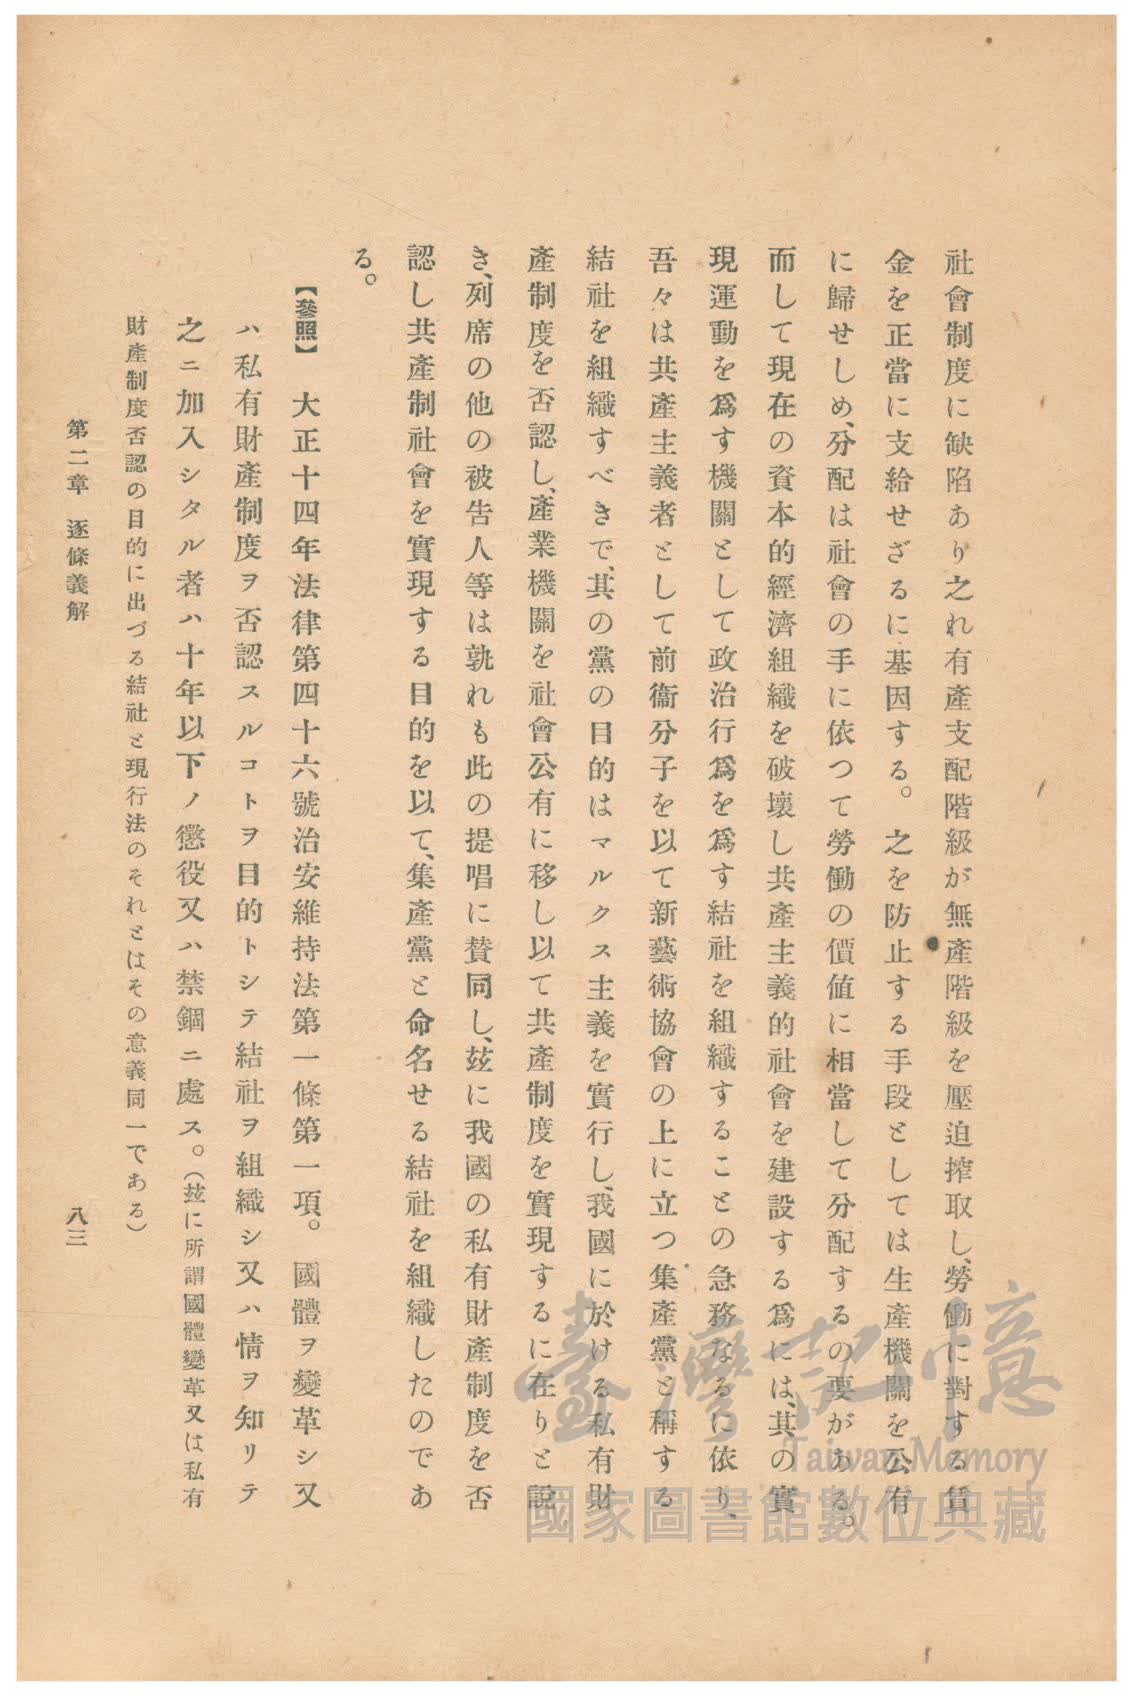 社會制度に缺陷あり之れ有產支配階級が無產階級を壓迫搾取し、勞働に對する賃
金を正當に支給せざるに基因する。之を防止する手段としては生產機關を公有
に歸せしめ、分配は社會の手に依つて勞働の價値に相當して分配するの要がある。
而して現在の資本的經濟組織を破壞し共產主義的社會を建設する爲には、其の實
現運動を爲す機關として政治行爲を爲す結社を組織することの急務なるに依り、
吾々は共產主義者として前衞分子を以て新藝術協會の上に立つ集產黨と稱する
結社を組織すべきで、其の黨の目的はマルクス主義を實行し、我國に於ける私有財
產制度を否認し、產業機關を社會公有に移し以て共產制度を實現するに在りと說
き、列席の他の被告人等は孰れも此の提唱に賛同し、玆に我國の私有財產制度を否
認し共產制社會を實現する目的を以て、集產黨と命名せる結社を組織したのであ
る。
【參照】 大正十四年法律第四十六號治安維持法第一條第一項。國體ヲ變革シ又
ハ私有財產制度ヲ否認スルコトヲ目的トシテ結社ヲ組織シ又ハ情ヲ知リテ
之ニ加入シタル者ハ十年以下ノ懲役又ハ禁錮ニ處ス。(玆に所謂國體變革又は私有
財產制度否認の目的に出づる結社と現行法のそれとはその意義同一である)
第二章 逐條義解 八三
臺灣記憶
Taiwan Memory
國家圖書館數位典藏